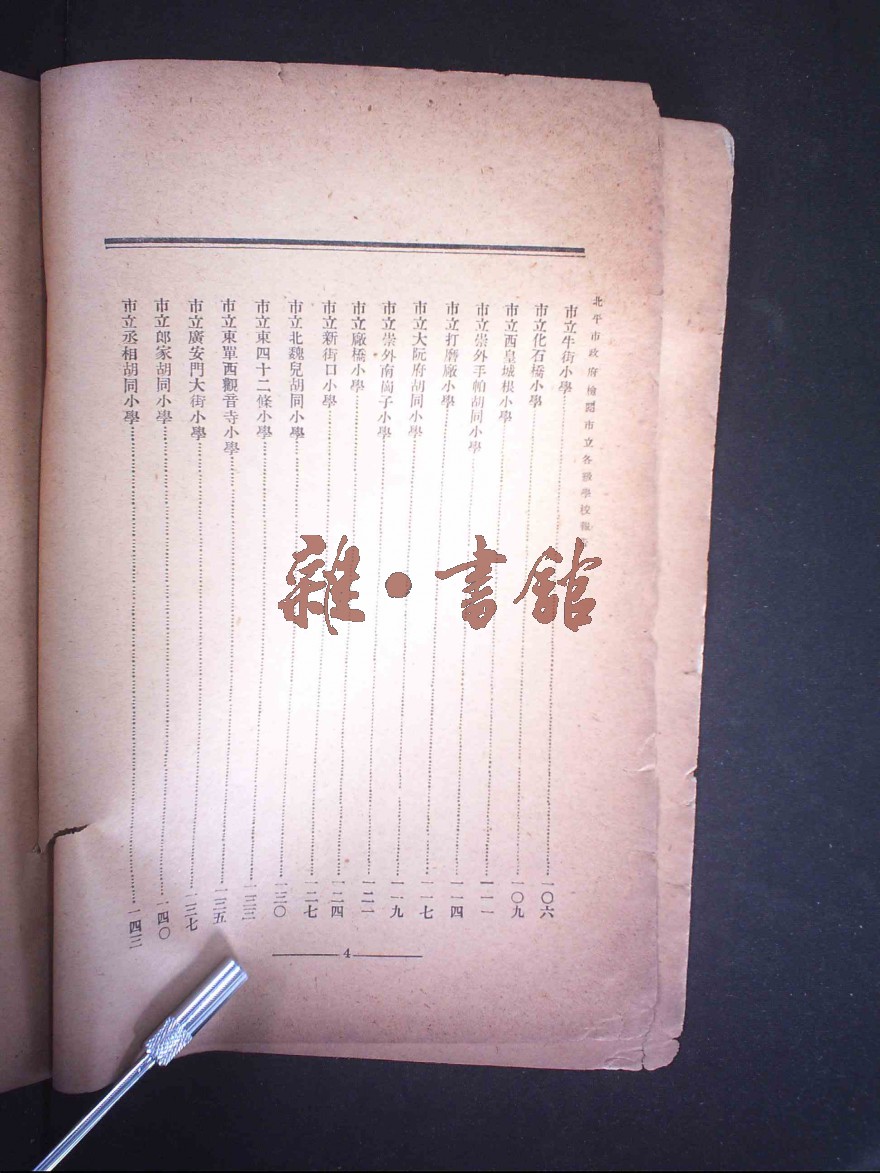 北平市政府檢閱市立各級學校
市立牛街小學……一〇六
市立化石橋小學……一〇九
市立西皇城根小學……一一一
市立崇外手帕胡同小學……一一四
市立打磨廠小學……一一七
市立大阮府胡同小學……一一九
市立崇外南崗子小學……一二一
市立廠橋小學……一二四
市立新街口小學……一二七
市立北魏兒胡同小學……一三〇
市立東四十二條小學……一三三
市立東單西觀音寺小學……一三五
市立廣安門大街小學……一三七
市立郎家胡同小學……一四〇
市立丞相胡同小學……一四三
4
雜·書館